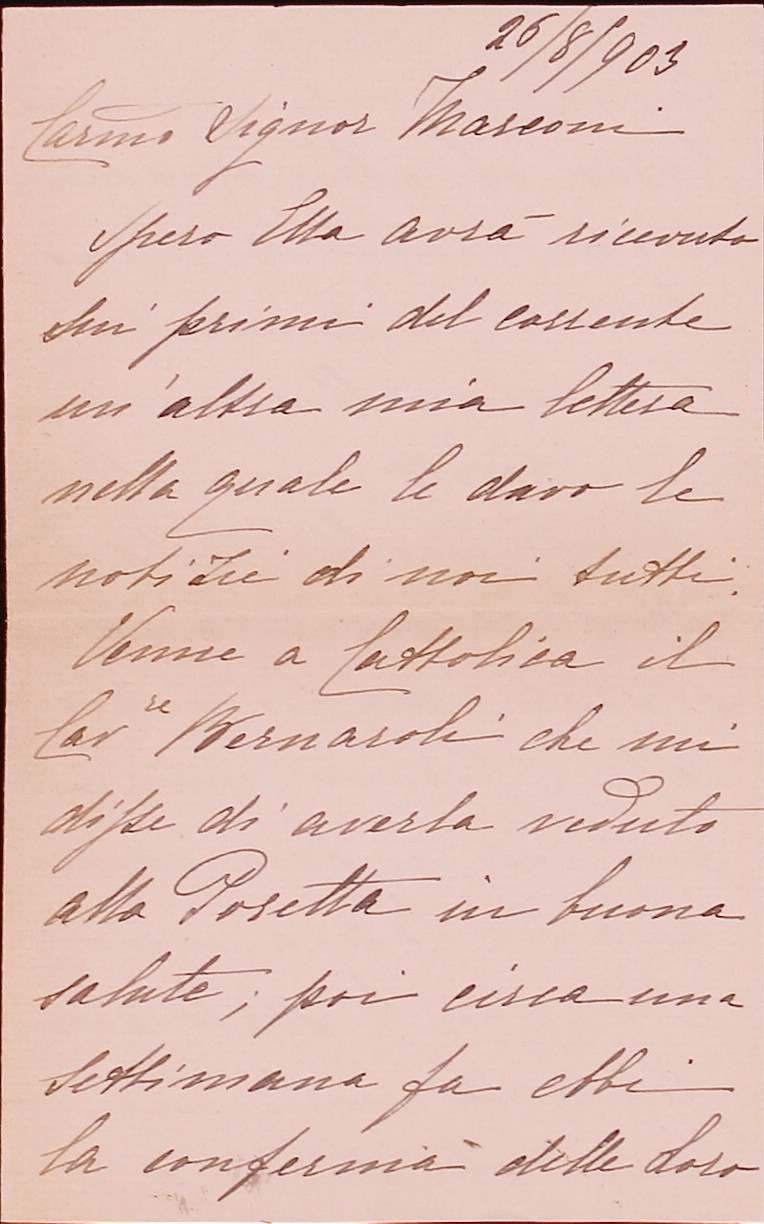 26/8/903
Carmo Signor Marconi
Spero Ella avrà ricevuto
sui primi del corrente
un'altra mia lettera
nella quale le davo le
notizie di noi tutti.
Venne a Cattolica il
Cavre Bernaroli che mi
disse di averla veduto
alla Poretta in buona
salute; poi circa una
settimana fa ebbi
la conferma delle Loro